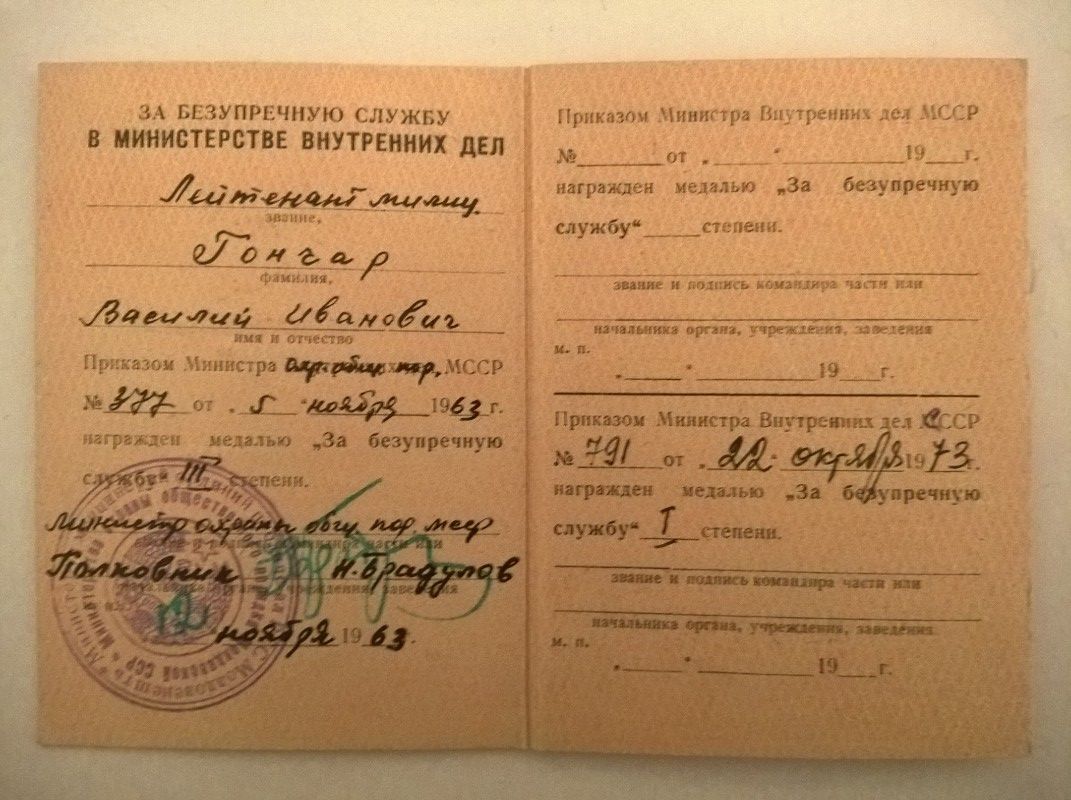 ЗА БЕЗУПРЕЧНУЮ СЛУЖБУ
В МИНИСТЕРСТВЕ ВНУТРЕННИХ ДЕЛ
Лейтенант милиц.
звание,
Гончар
фамилия,
Василий Иванович
имя и отчество
Приказом Министра Охр. общ. пор. МССР
№ 377 от „5" ноября 1963 г.
награжден медалью „За безупречную
службу" III степени.
Министр охраны общ. пор. МССР
Полковник Н. Брадулов
12 ноября 1963 г.
Приказом Министра Внутренних дел МССР
№ от „ " 19 г.
награжден медалью „За безупречную
службу“ степени.
звание и подпись командира части или
начальника органа, учреждения, заведения
м. п.
„ " 19 г.
Приказом Министра Внутренних дел СССР
№ 791 от „22" октября 1973 г.
награжден медалью „За безупречную
службу“ I степени.
звание и подпись командира части или
начальника органа, учреждения, заведения
м. п.
„ " 19 г.